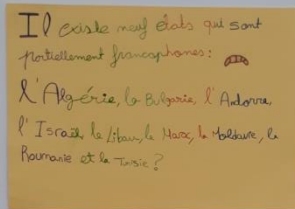 Il existe neuf états qui sont
partiellement francophones :
l'Algérie, la Bulgarie, l'Andorre,
l'Israël, le Liban, le Maroc, la Moldavie, la
Roumanie et la Tunisie ?